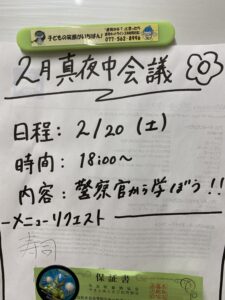 子どもの笑顔がいちばん!
077-562-8998
2月真夜中会議
日程: 2/20 (土)
時間: 18:00〜
内容: 警察官から学ぼう!!
ーメニューリクエスト
寿司
保証書